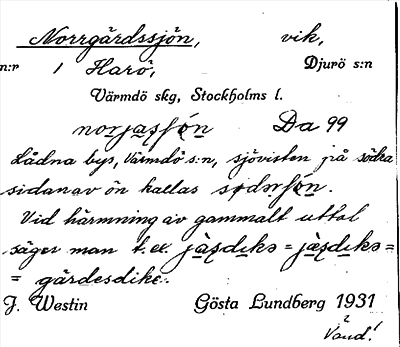 Norrgårdssjön, vik,
n:r 1 Harö, Djurö s:n
Värmdö skg, Stockholms l.
norjasjón Da 99
Lådna bys, Värmdö s:n, sjövisten på södra
sidan av ön kallas
Vid härmning av gammalt uttal
säger man t. ex. jàsdɩkə = jàsdɩkə =
= gärdesdike.
J. Westin Gösta Lundberg 1931
Vänd!